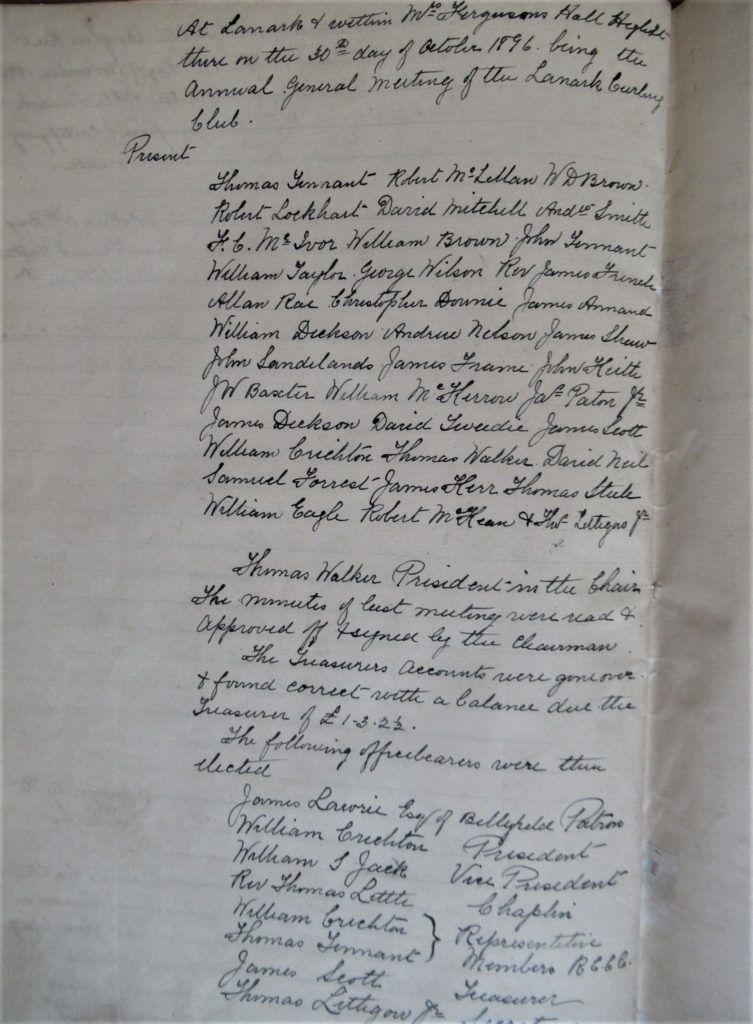 At Lanark & within Mrs Fergusons Hall
there on the 30th day of October 1896. being the
Annual General Meeting of the Lanark Curling
Club.
Present
Thomas Tennant Robert McLellan W D Brown.
Robert Lockhart David Mitchell Andw Smith
F. C. McIvor William Brown John Tennant
William Taylor. George Wilson Rev James French
Allan Rae Christopher Downie James Annand
William Dickson Andrew Nelson James Shaw
John Sandilands James Frame John Keith
JW Baxter William McKerrow Jas Paton Jr
James Dickson David Tweedie James Scott
William Crichton Thomas Walker. David Neil
Samuel Forrest James Kerr Thomas Steele
William Eagle Robert McKean & Thos Littigow Jr
Thomas Walker President in the Chair
The minutes of last meeting were read &
approved off & signed by the Chairman.
The Treasurers Accounts were gone over
& found correct with a balance due the
Treasurer of £1-3-2½.
The following officebearers were then
elected
James Lawrie Esq of Bellefield Patron
William Crichton President
William S Jack Vice President
Rev Thomas Little Chaplin
William Crichton } Representitive
Thomas Tennant } Members RCCC.
James Scott Treasurer
Thomas Littigow Jr